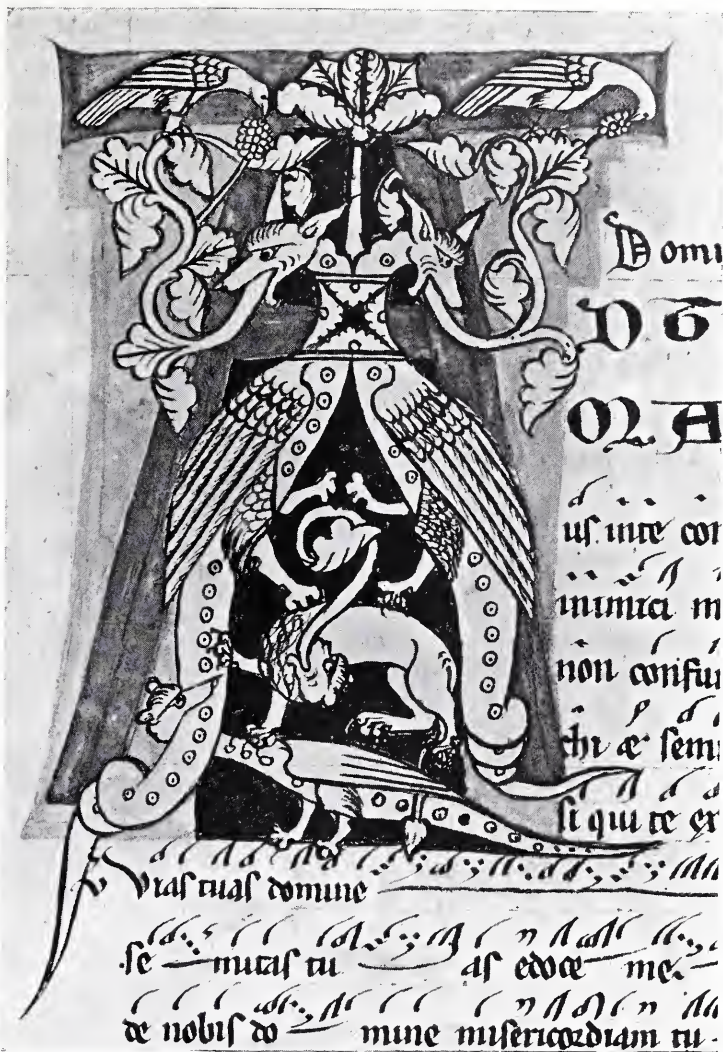 Domi
D T
us in te con
inimici m
non confu
si qui te ex
Vias tuas domine
se mitas tu as edoce me.
de nobis do mine misericordiam tu